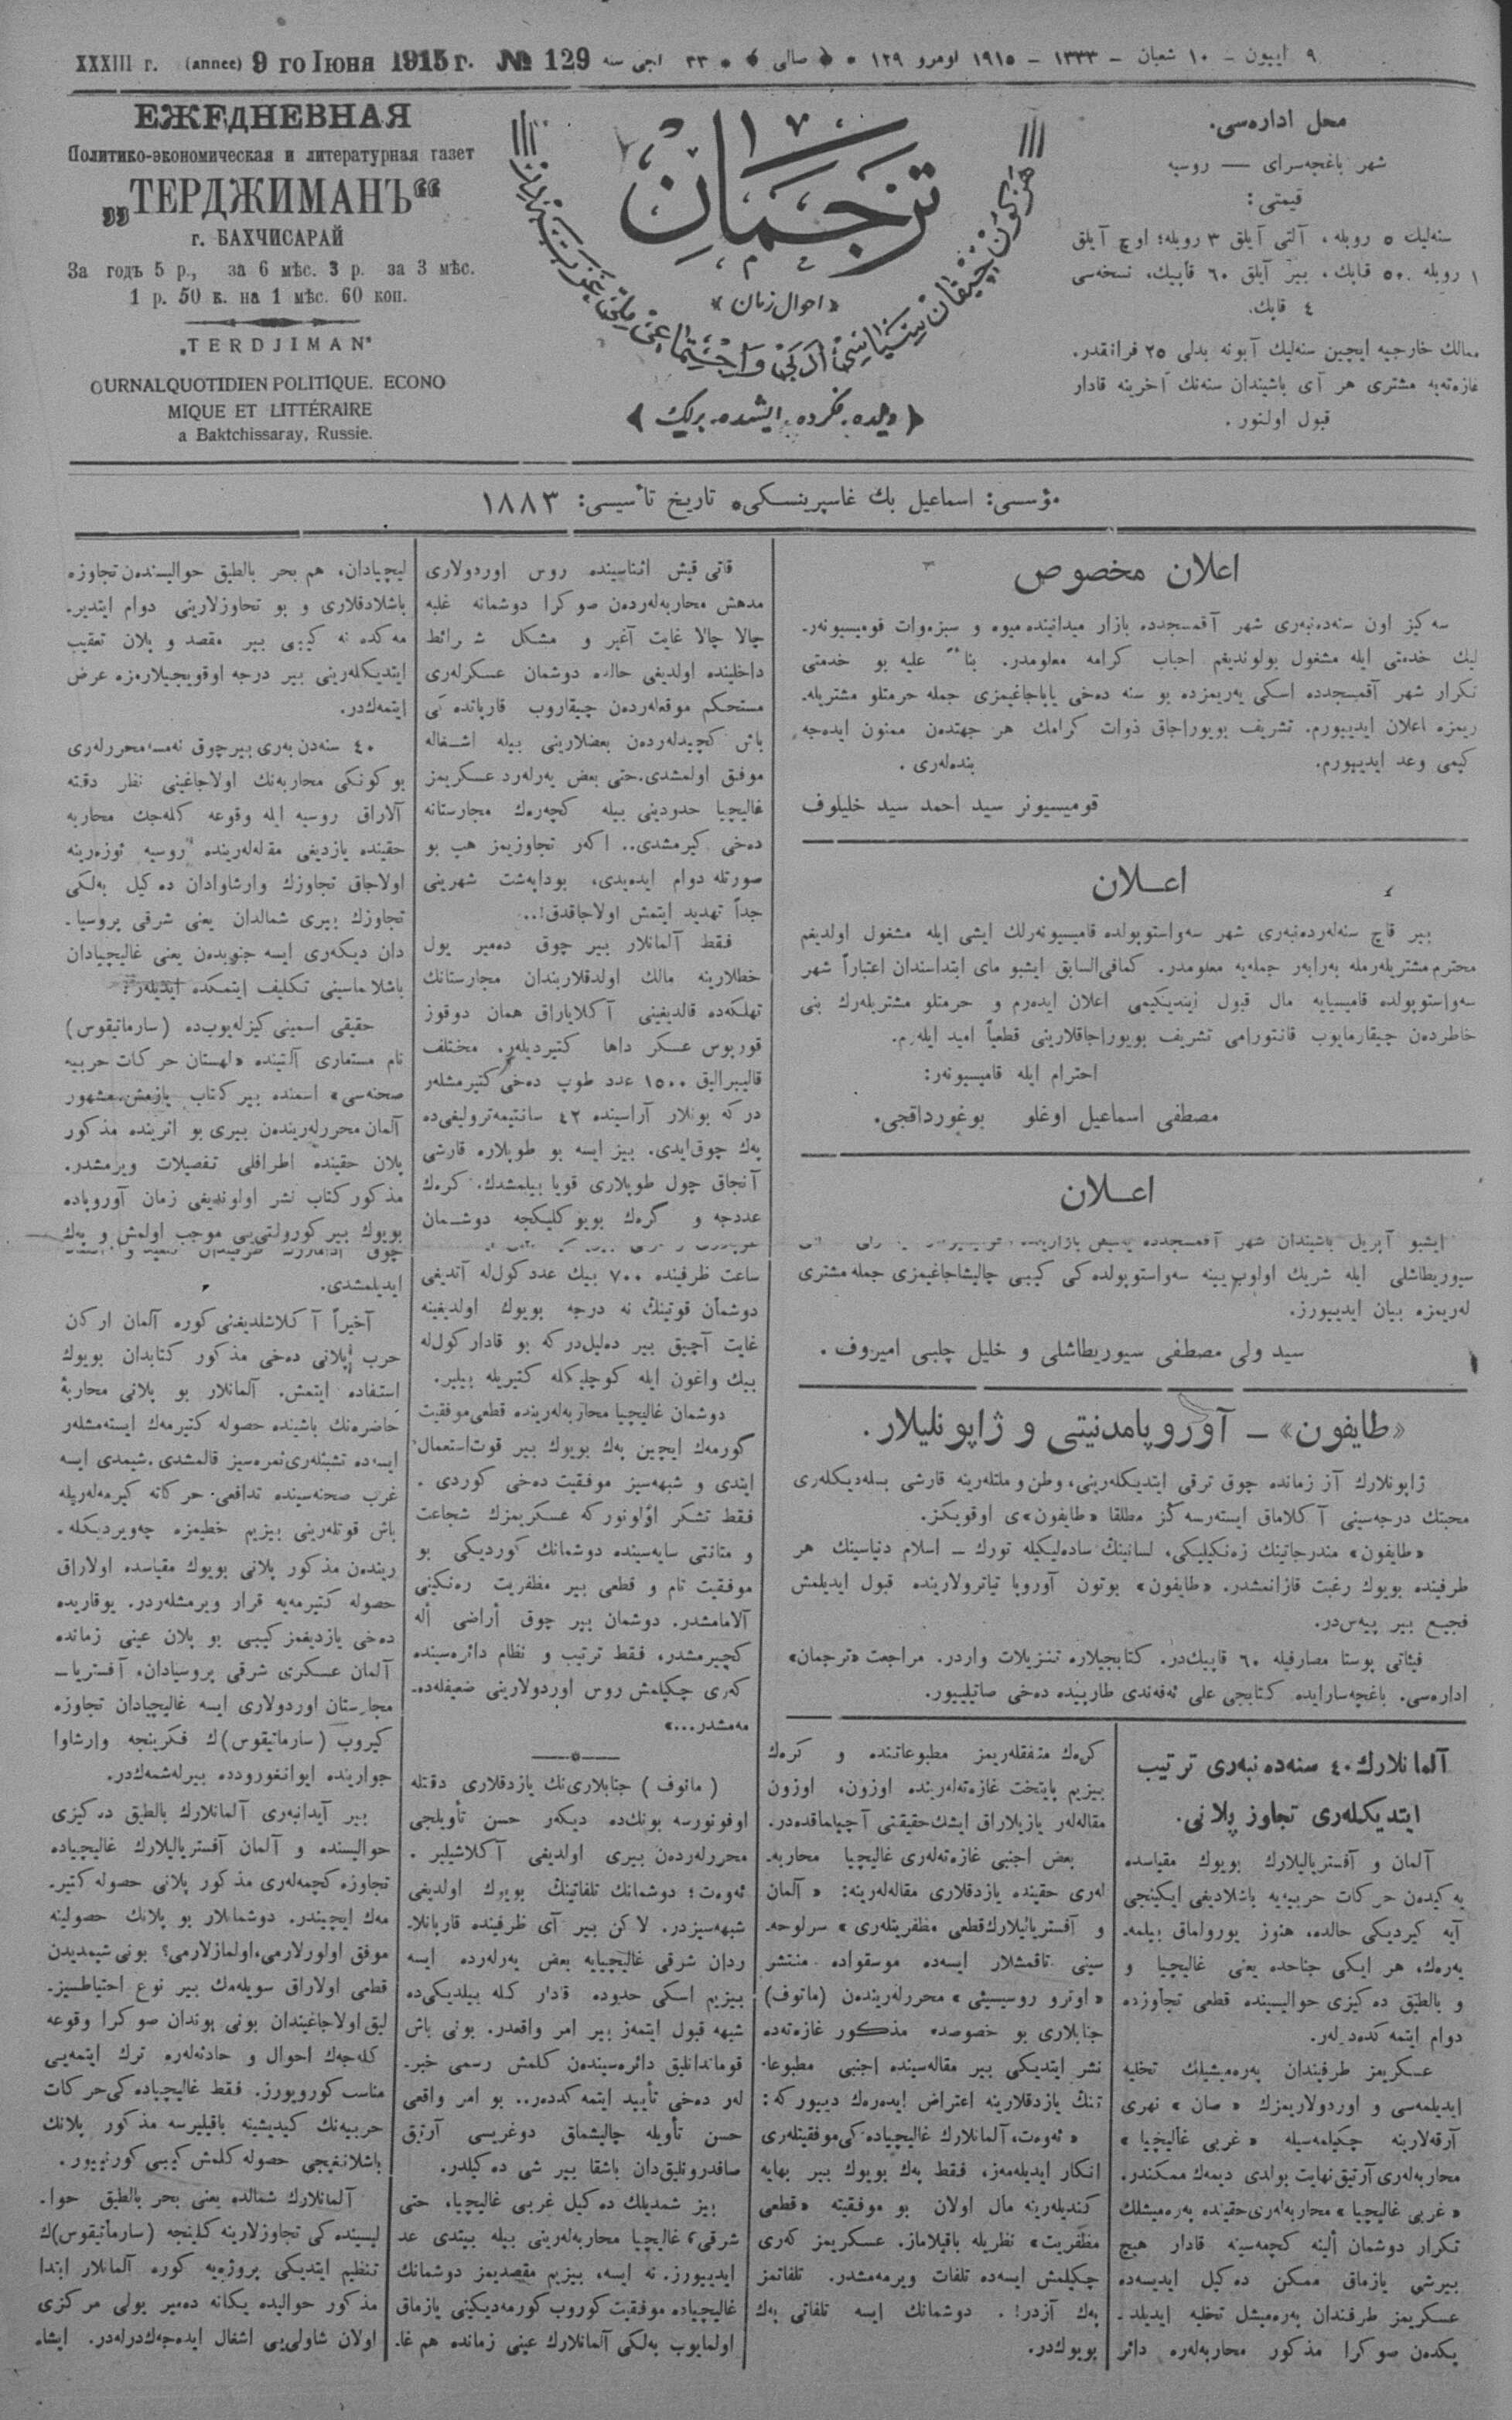 XXXIII г. (annee) 9 го Іюня 1915 г. № 129 ٣٣ اجی سنه ﴿ صالی ﴾ ١٩١٥ نومرو ١٢٩ – ١٣٣٣ – ١٠ شعبان – ٩ اییون
ЕЖЕДНЕВНАЯ
Политико-экономическая и литературная газет
„ТЕРДЖИМАНЪ“
г. БАХЧИСАРАЙ
За годъ 5 р., за 6 мѣс. 3 р. за 3 мѣс.
1 р. 50 к. на 1 мѣс. 60 коп.
„TERDJIMAN“
OURNALQUOTIDIEN POLITIQUE. ECONO
MIQUE ET LITTÉRAIRE
a Baktchissaray, Russie.
ترجمان
«احوال زمان»
﴿ دیلده، فکرده، ایشده، برلك ﴾
محل اداره‌سی.
شهر باغچه‌سرای — روسیه
قیمتی:
سنه‌لیك ٥ روبله، آلتی آیلق ٣ روبله؛ اوچ آیلق
١ روبله ٥٠ قاپك، بیر آیلق ٦٠ قاپیك، نسخه‌سی
٤ قاپك.
ممالك خارجیه ایچین سنه‌لیك آبونه بدلی ٢٥ فرانقدر.
غازه‌ته‌یه مشتری هر آی باشیندان سنه‌نك آخرینه قادار
قبول اولنور.
مؤسسی: اسماعیل بك غاسپرینسکی، تاریخ تأسیسی: ١٨٨٣
اعلان مخصوص
سه‌کیز اون سنه‌ده‌نبه‌ری شهر آقمسجدده بازار میداننده میوه و سبزه‌وات قومیسیونه‌ر.
لیك خدمتی ایله مشغول بولوندیغم احباب کرامه معلومدر. بناءً علیه بو خدمتی
تکرار شهر آقمسجدده اسکی یه‌ریمزده بو سنه ده‌خی یاپاجاغیمزی جمله حرمتلو مشتریله.
ریمزه اعلان ایدییورم. تشریف بویوراجاق ذوات کرامك هر جهتدن ممنون ایده‌جه‌
کیمی وعد ایدییورم. بنده‌لری.
قومیسیونر سید احمد سید خلیلوف
اعـــلان
بیر قاچ سنه‌لرده‌نبه‌ری شهر سه‌واستوپولده قامیسیونه‌رلك ایشی ایله مشغول اولدیغم
محترم مشتریله‌رمله به‌رابه‌ر جمله‌یه معلومدر. کمافی‌السابق ایشبو مای ابتداسندان اعتباراً شهر
سه‌واستوپولده قامیسیایه مال قبول ایتدیکیمی اعلان ایده‌رم و حرمتلو مشتریله‌رك بنی
خاطردن چیقارمایوب قانتورامی تشریف بویوراجاقلارینی قطعیاً امید ایله‌رم.
احترام ایله قامیسیونه‌ر:
مصطفی اسماعیل اوغلو بوغورداقجی.
اعـــلان
ایشبو آپریل باشیندان شهر آقمسجدده
سیوریطاشلی ایله شریك اولوب یینه سه‌واستوپولده کی کیبی چالیشاجاغیمزی جمله مشتری
له‌ریمزه بیان ایدییورز.
سید ولی مصطفی سیوریطاشلی و خلیل چلبی امیروف.
«طایفون» — آوروپامدنیتی و ژاپونلیلار.
ژاپونلارك آز زمانده چوق ترقی ایتدیکله‌رینی، وطن و ملتله‌رینه قارشی بسله‌دیکله‌ری
محبتك درجه‌سینی آکلاماق ایسته‌رسه‌کز مطلقا «طایفون»ی اوقویکز.
«طایفون» مندرجاتینك زه‌نکیلیکی، لسانینك ساده‌لیکیله تورك — اسلام دنیاسینك هر
طرفینده بویوك رغبت قازانمشدر. «طایفون» بوتون آوروپا تیاترولارینده قبول ایدیلمش
فجیع بیر پیه‌س‌در.
فیئاتی پوستا مصارفیله ٦٠ قاپیك‌در. کتابجیلاره تنزیلات واردر. مراجعت «ترجمان»
اداره‌سی. باغچه‌سارایده کتابجی علی ئه‌فه‌ندی طارپیده ده‌خی صاتیلییور.
آلمانلارك ٤٠ سنه‌ده‌نبه‌ری ترتیب
ایتدیکله‌ری تجاوز پلانی.
آلمان و آفستریالیلارك بویوك مقیاسده
یه‌کیدن حرکات حربیه‌یه باشلادیغی ایکینجی
آیه کیردیکی حالده، هنوز یورولماق بیلمه.
یه‌رك، هر ایکی جناحده یعنی غالیچیا و
و بالطیق ده‌کیزی حوالیسینده قطعی تجاوزده
دوام ایتمه‌کده‌دیلر.
عسکریمز طرفیندان په‌ره‌میشلك تخلیه
ایدیلمه‌سی و اوردولاریمزك «صان» نهری
آرقه‌لارینه چکیلمه‌سیله «غربی غالیچیا»
محاربه‌له‌ری آرتیق نهایت بولدی دیمه‌ك ممکندر.
«غربی غالیچیا» محاربه‌له‌ری حقینده په‌ره‌میشلك
تکرار دوشمان ألینه کچمه‌سینه قادار هیچ
بیرشی یازماق ممکن ده‌کیل ایدیسه‌ده
عسکریمز طرفندان په‌ره‌میشل تخلیه ایدیلد.
یکدن صوکرا مذکور محاربه‌له‌ره دائر
کره‌ك متفقله‌ریمز مطبوعاتنده و کره‌ك
بیزیم پایتخت غازه‌ته‌له‌رنده اوزون، اوزون
مقاله‌لر یازیلاراق ایشك حقیقتی آچیلماقده‌در.
بعض اجنبی غازه‌ته‌له‌ری غالیچیا محاربه.
له‌ری حقینده یازدقلاری مقاله‌له‌رینه: «آلمان
و آفستریالیلارك قطعی مظفریتله‌ری» سرلوحه.
سینی تاقمشلار ایسه‌ده موسقواده منتشر
«اوترو روسییئی» محررله‌ریندن (ماتوف)
جنابلاری بو خصوصده مذکور غازه‌ته‌ده
نشر ایتدیکی بیر مقاله‌سینده اجنبی مطبوعا.
تنك یازدقلارینه اعتراض ایده‌رك دییورکه:
«ئه‌وه‌ت، آلمانلارك غالیچیاده‌کی موفقیتله‌ری
انکار ایدیله‌مه‌ز، فقط په‌ك بویوك بیر بهایه
کندیله‌رینه مال اولان بو موفقیته «قطعی
مظفریت» نظریله باقیلاماز. عسکریمز که‌ری
چکیلمش ایسه‌ده تلفات ویرمه‌مشدر. تلفاتمز
په‌ك آزدر!. دوشمانك ایسه تلفاتی په‌ك
بویوك‌در.
قاتی قیش اثناسینده روس اوردولاری
مدهش محاربه‌له‌ردن صوکرا دوشمانه غلبه
چالا چالا غایت آغیر و مشکل شرائط
داخلینده اولدیغی حالده دوشمان عسکرله‌ری
مستحکم موقعله‌ردن چیقاروب قارپاتده‌کی
باش کچیدله‌ردن بعضلارینی بیله اشغاله
موفق اولمشدی. حتی بعض یه‌رله‌رد عسکریمز
غالیچیا حدودینی بیله کچه‌رك مجارستانه
ده‌خی کیرمشدی.. اکه‌ر تجاوزیمز هپ بو
صورتله دوام ایده‌یدی، بوداپه‌شت شهرینی
جداً تهدید ایتمش اولاجاقدق!..
فقط آلمانلار بیر چوق ده‌میر یول
خطلارینه مالك اولدقلاریندان مجارستانك
تهلکه‌ده قالدیغینی آکلایاراق همان دوقوز
قورپوس عسکر داها کتیردیله‌ر. مختلف
قالیبرالیق ١٥٠٠ عدد طوپ ده‌خی کتیرمشلر
درکه بونلار آراسینده ٤٢ سانتیمه‌ترولیغی‌ده
په‌ك چوق‌ایدی. بیز ایسه بو طوپلاره قارشی
آنجاق چول طوپلاری قویا بیلمشدك. کره‌ك
عددجه و گره‌ك بویوکلیکجه دوشمان
ساعت ظرفینده ٧٠٠ بیك عدد کول‌له آتدیغی
دوشمان قوتینك نه درجه بویوك اولدیغینه
غایت آچیق بیر ده‌لیل‌درکه بو قادار کول‌له
بیك واغون ایله کوچلیکله کتیریله بیلیر.
دوشمان غالیچیا محاربه‌له‌رینده قطعی موفقیت
کورمه‌ك ایچین په‌ك بویوك بیر قوت استعمال
ایتدی و شبهه‌سیز موفقیت ده‌خی کوردی.
فقط تشکر اولونورکه عسکریمزك شجاعت
و متانتی سایه‌سینده دوشمانك کوردیکی بو
موفقیت تام و قطعی بیر مظفریت ره‌نکینی
آلامامشدر. دوشمان بیر چوق أراضی أله
کچیرمشدر، فقط ترتیب و نظام دائره‌سینده
که‌ری چکیلمش روس اوردولارینی ضعیفله‌ده.
مه‌مشدر...»
(ماتوف) جنابلاری‌نك یازدقلاری دقتله
اوقونورسه بونك‌ده دیکه‌ر حسن تأویلجی
محررله‌ردن بیری اولدیغی آکلاشیلیر.
ئه‌وه‌ت؛ دوشمانك تلفاتینك بویوك اولدیغی
شبهه‌سیزدر. لاکن بیر آی ظرفینده قارپاتلا.
ردان شرقی غالیچیایه بعض یه‌رله‌رده ایسه
بیزیم اسکی حدوده قادار کله بیلدیکی‌ده
شبهه قبول ایتمه‌ز بیر امر واقعدر. بونی باش
قوماندانلیق دائره‌سیندن کلمش رسمی خبر.
له‌ر ده‌خی تأیید ایتمه‌کده‌در.. بو امر واقعی
حسن تأویله چالیشماق دوغریسی آرتیق
صافدرونلیق‌دان باشقا بیر شی ده‌کیلدر.
بیز شمدیلك ده‌کیل غربی غالیچیا، حتی
شرقی غالیچیا محاربه‌له‌رینی بیله بیتدی عد
ایدییورز. نه ایسه، بیزیم مقصدیمز دوشمانك
غالیچیاده موفقیت کوروب کورمه‌دیکینی یازماق
اولمایوب به‌لکی آلمانلارك عینی زمانده هم غا.
لیچیادان، هم بحر بالطیق حوالیسندن تجاوزه
باشلادقلاری و بو تجاوزلارینی دوام ایتدیر.
مه‌کده نه کیبی بیر مقصد و پلان تعقیب
ایتدیکله‌رینی بیر درجه اوقویجیلارمزه عرض
ایتمه‌ك‌در.
٤٠ سنه‌دن به‌ری بیرچوق نه‌مسه محررله‌ری
بوکونکی محاربه‌نك اولاجاغینی نظر دقته
آلاراق روسیه ایله وقوعه کله‌جك محاربه
حقینده یازدیغی مقاله‌له‌رینده «روسیه ئوزه‌رینه
اولاجاق تجاوزك وارشاوادان ده‌کیل به‌لکی
تجاوزك بیری شمالدان یعنی شرقی پروسیا.
دان دیکه‌ری ایسه جنوبدن یعنی غالیچیادان
باشلاماسینی تکلیف ایتمکده ایدیله‌ر.
حقیقی اسمینی کیزله‌یوب‌ده (سارماتیقوس)
نام مستعاری آلتینده «لهستان حرکات حربیه
صحنه‌سی» اسمنده بیر کتاب یازمش، مشهور
آلمان محررله‌ریندن بیری بو اثرینده مذکور
پلان حقینده اطرافلی تفصیلات ویرمشدر.
مذکور کتاب نشر اولوندیغی زمان آوروپاده
بویوك بیر کورولتی‌یی موجب اولمش و په‌ك
ایدیلمشدی.
آخیراً آکلاشلدیغنی کوره آلمان ارکان
حرب پلانی ده‌خی مذکور کتابدان بویوك
استفاده ایتمش. آلمانلار بو پلانی محاربهٔ
حاضره‌نك باشینده حصوله کتیرمه‌ك ایسته‌مشله‌ر
ایسه‌ده تشبثله‌ری ثمره‌سیز قالمشدی. شیمدی ایسه
غرب صحنه‌سینده تدافعی حرکاته کیرمه‌له‌ریله
باش قوتله‌رینی بیزیم خطیمزه چه‌ویردیکله.
ریندن مذکور پلانی بویوك مقیاسده اولاراق
حصوله کتیرمه‌یه قرار ویرمشله‌ردر. یوقاریده
ده‌خی یازدیغمز کیبی بو پلان عینی زمانده
آلمان عسکری شرقی پروسیادان، آفستریا—
مجارستان اوردولاری ایسه غالیچیادان تجاوزه
کیروب (سارماتیقوس)ك فکرینجه وارشاوا
جوارینده ایوانغورودده بیرله‌شمه‌ك‌در.
بیر آیدانبه‌ری آلمانلارك بالطیق ده‌کیزی
حوالیسنده و آلمان آفستریالیلارك غالیچیاده
تجاوزه کچمه‌له‌ری مذکور پلانی حصوله کتیر.
مه‌ك ایچیندر. دوشمانلار بو پلانك حصولینه
موفق اولورلارمی، اولمازلارمی؟ بونی شیمدیدن
قطعی اولاراق سویله‌مه‌ك بیر نوع احتیاطسیز.
لیق اولاجاغیندان بونی بوندان صوکرا وقوعه
کله‌جه‌ك احوال و حادثه‌له‌ره ترك ایتمه‌یی
مناسب کورویورز. فقط غالیچیاده‌کی حرکات
حربیه‌نك کیدیشینه باقیلیرسه مذکور پلانك
باشلانغیجی حصوله کلمش کیبی کورنییور.
آلمانلارك شمالده یعنی بحر بالطیق حوا.
لیسینده‌کی تجاوزلارینه کلینجه (سارماتیقوس)ك
تنظیم ایتدیکی پروژه‌یه کوره آلمانلار ابتدا
مذکور حوالیده یکانه ده‌میر یولی مرکزی
اولان شاولی‌یی اشغال ایده‌جه‌ك‌درله‌ر. ایشاء